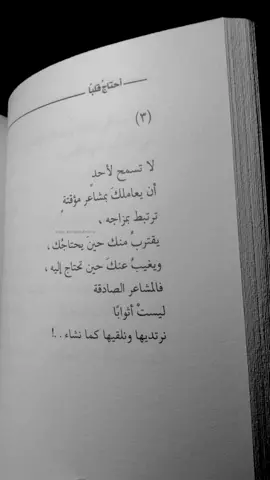 أحتاجُ قلبًا
(٣)
لا تسمح لأحد
أن يعاملكَ بمشاعرٍ مؤقتةٍ
ترتبط بمزاجه ،
يقتربُ منك حينَ يحتاجُك ،
ويغيبُ عنكَ حين تحتاج إليه ،
فالمشاعر الصادقة
ليستْ أثوابًا
نرتديها ونلقيها كما نشاء . .!